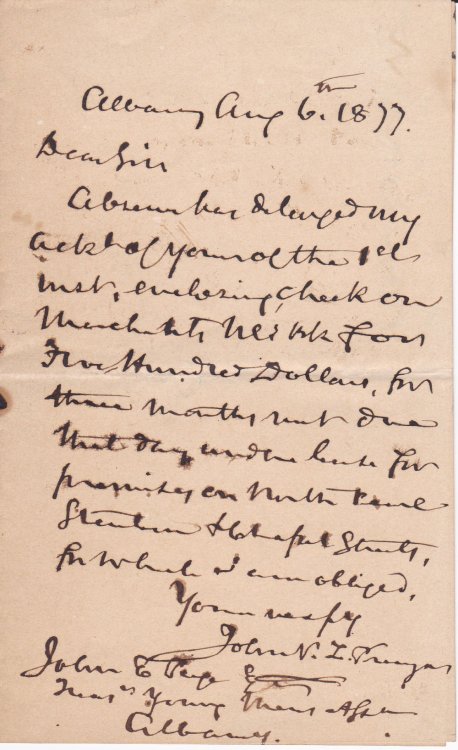 Albany Aug 6th. 1877.
Dear Sir
Absence has delayed my
ackt of yours of the 1st
inst, enclosing check on
Merchants Nat Bk for
Five Hundred Dollars, for
three months rent due
that day under lease for
premises on North Pearl
Steuben & Chapel Streets,
for which I am obliged,
Yours resfy
John V. L. Pruyn
John E Page Esq
Treasr Young Mens Assn
Albany.